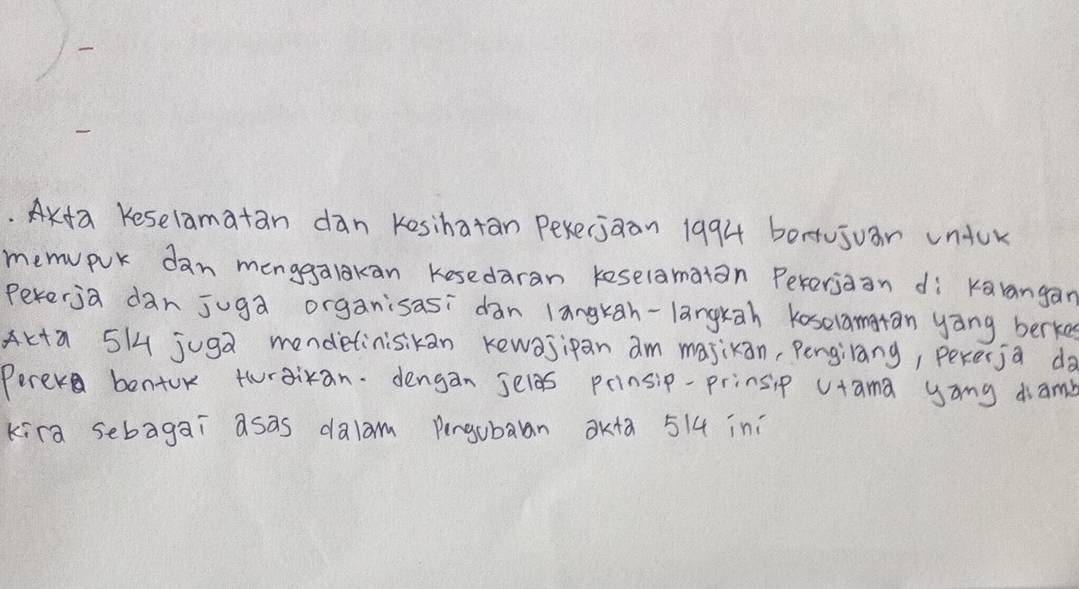 . Akta keselamatan dan kesihatan Pekerjaan 1994 bertujuan untuk
memupuk dan menggalakan kesedaran keselamatan Pekerjaan di kalangan
Pekerja dan juga organisasi dan langkah-langkah keselamatan yang berkes
Akta 514 juga mendefinisikan kewajipan am majikan, Pengilang, pekerja da
Pereka bentuk Huraikan. dengan jelas prinsip-prinsip utama yang diamb
kira sebagai asas dalam Pengubalan akta 514 ini